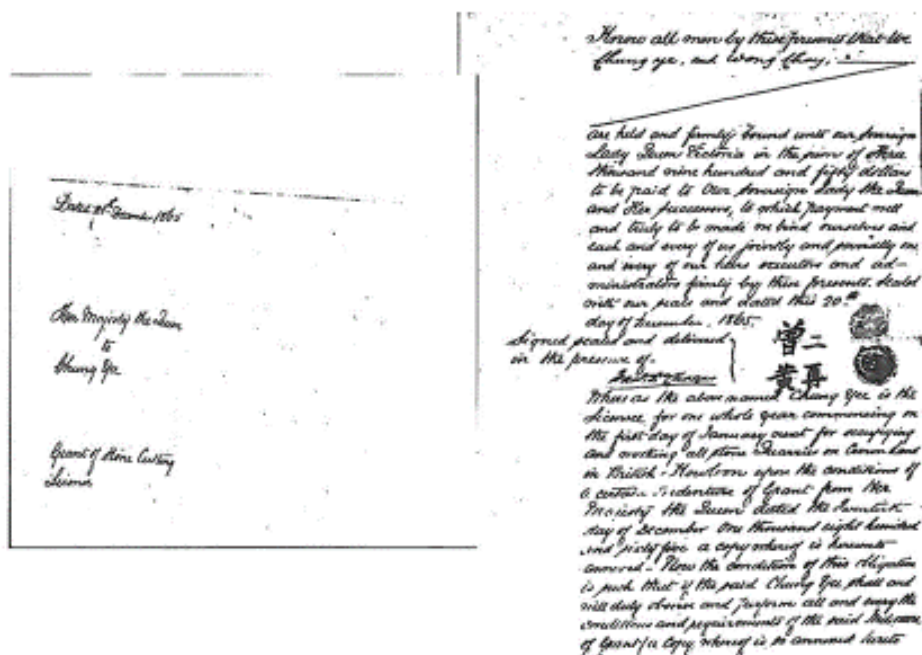 Dated 20th December 1865
Her Majesty the Queen
to
Chung Yee
Grant of Stone Cutting
License
Know all men by these presents that We
Chung ye, and Wong Choy,
are held and firmly bound unto our Sovereign
Lady Queen Victoria in the sum of three
thousand nine hundred and fifty dollars
to be paid to Our Sovereign Lady the Queen
and Her successors, to which payment well
and truly to be made we bind ourselves and
each and every of us jointly and severally our
and every of our heirs executors and ad-
ministrators firmly by these presents. Sealed
with our seals and dated this 20th
day of December, 1865.
Signed sealed and delivered
in the presence of
曾二
黄再
Whereas the above named Chung Yee is the
licensee for one whole year commencing on
the first day of January next for occupying
and working all stone Quarries on Crown Land
in British Kowloon upon the conditions of
a certain Indenture of Grant from Her
Majesty the Queen dated the twentieth
day of December One thousand eight hundred
and sixty five a copy whereof is hereunto
annexed. Now the condition of this obligation
is such that if the said Chung Yee shall and
will duly observe and perform all and every the
conditions and requirements of the said Indenture
of Grant (a copy whereof is so annexed hereto